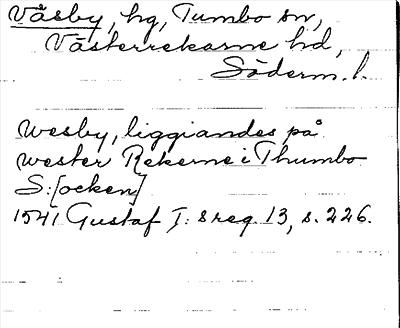 Väsby, hg, Tumbo sn,
Västerrekarne hd,
Söderm. l.
Wesby, liggiandes på
wester Rekerne i Thumbo
S:[ocken]
1541 Gustaf I: s reg. 13, s. 226.